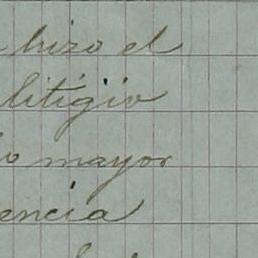 hizo el
litigio
mayor
encia